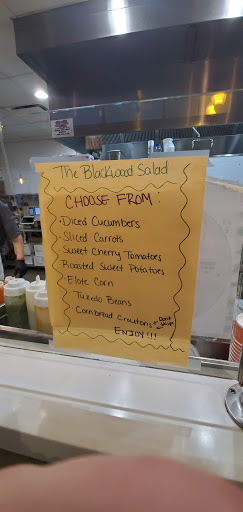 The Blackwood Salad
CHOOSE FROM:
• Diced Cucumbers
• Sliced Carrots
Sweet Cherry Tomatoes
Roasted Sweet Potatoes
Elote Corn
Tuxedo Beans
Cornbread Croutons
ENJOY!!!